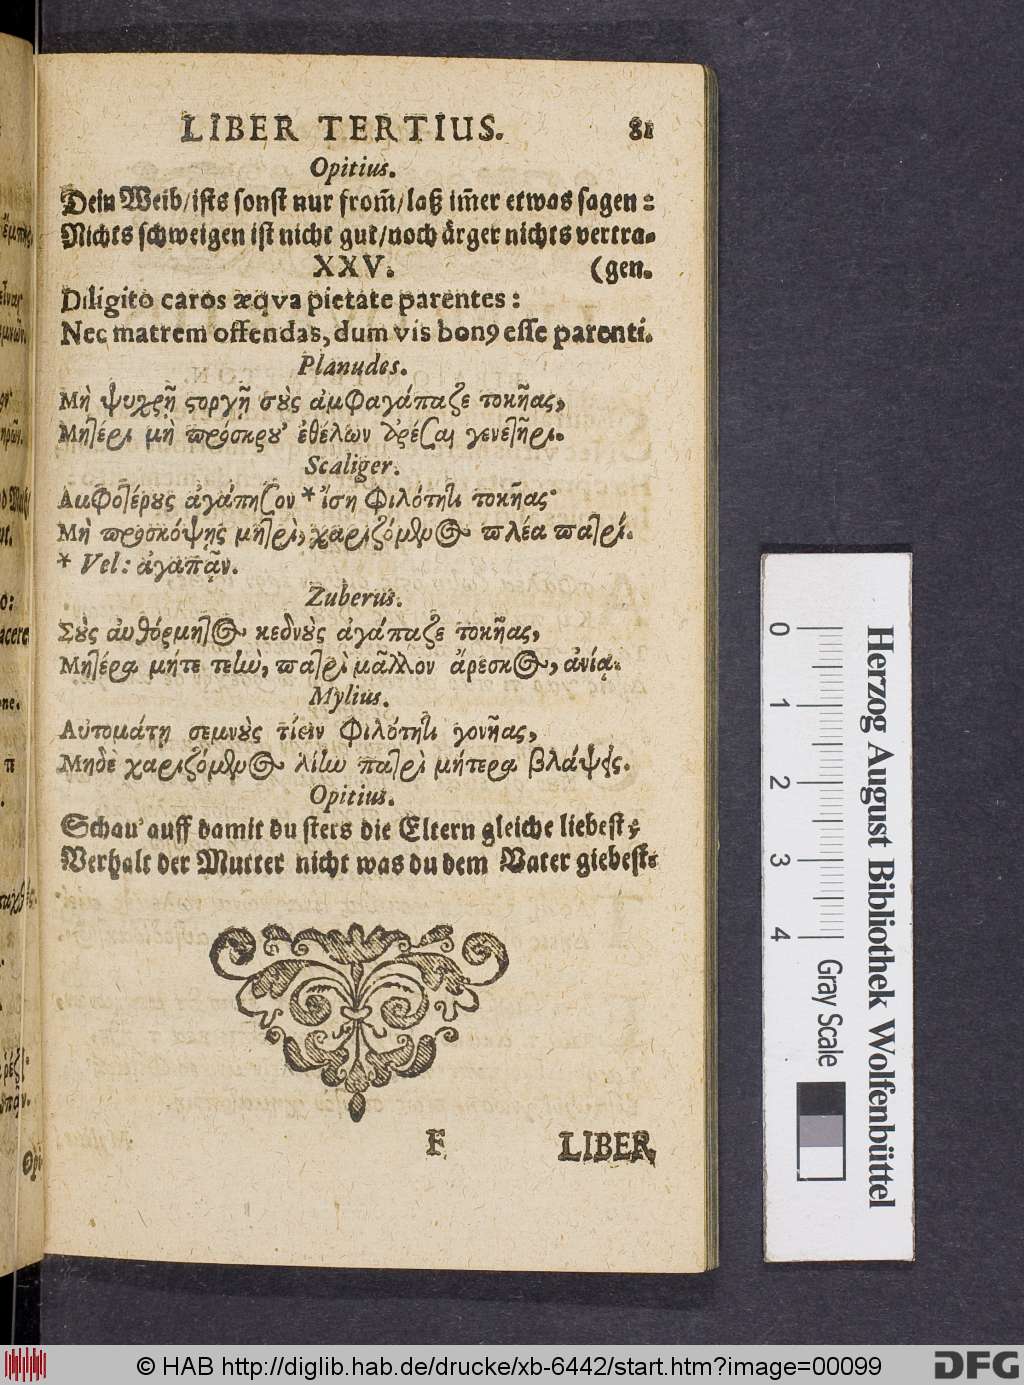 LIBER TERTIUS. 81
Opitius.
Dein Weib/ists sonst nur from̃/laß im̃er etwas sagen:
Nichts schweigen ist nicht gut/noch ärger nichts vertra-
XXV. (gen.
Diligito caros æqva pietate parentes:
Nec matrem offendas, dum vis bonꝰ esse parenti.
Planudes.
Μὴ ψυχρῇ ςοργῇ σοὺς ἀμφαγάπαζε τοκῆας,
Μητέρι μὴ πρόσκρου' ἐθέλων ἀρέσαι γενετῆρι.
Scaliger.
Αμφοτέρους ἀγάπησον * ἴση φιλότητι τοκῆας·
Μὴ προσκόψῃς μητρὶ, χαριζόμενος πλέα πατρί.
* Vel: ἀγαπᾷν.
Zuberus.
Σοὺς αὐθόρμητος κεδνοὺς ἀγάπαζε τοκῆας,
Μητέρα μήτε τεὴν, πατρὶ μᾶλλον ἄρεσκος, ἀνία.
Mylius.
Αὐτομάτῃ σεμνοὺς τίειν φιλότητι γονῆας,
Μηδὲ χαριζόμενος λίην πατρὶ μήτερα βλάψεις.
Opitius.
Schau' auff damit du stets die Eltern gleiche liebest;
Verhalt der Mutter nicht was du dem Vater giebest.
F LIBER
0 1 2 3 4
Gray Scale
Herzog August Bibliothek Wolfenbüttel
© HAB http://diglib.hab.de/drucke/xb-6442/start.htm?image=00099
DFG